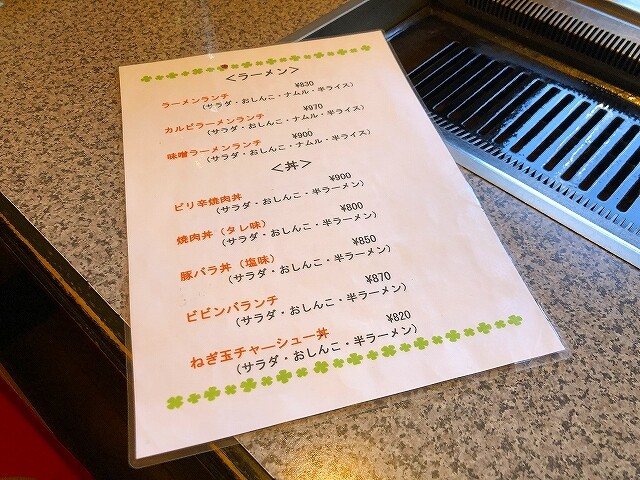 ＜ラーメン＞
ラーメンランチ ¥830
（サラダ・おしんこ・ナムル・半ライス）
カルビラーメンランチ ¥970
（サラダ・おしんこ・ナムル・半ライス）
味噌ラーメンランチ ¥900
（サラダ・おしんこ・ナムル・半ライス）
＜丼＞
ピリ辛焼肉丼 ¥900
（サラダ・おしんこ・半ラーメン）
焼肉丼（タレ味） ¥800
（サラダ・おしんこ・半ラーメン）
豚バラ丼（塩味） ¥850
（サラダ・おしんこ・半ラーメン）
ビビンバランチ ¥870
（サラダ・おしんこ・半ラーメン）
ねぎ玉チャーシュー丼 ¥820
（サラダ・おしんこ・半ラーメン）